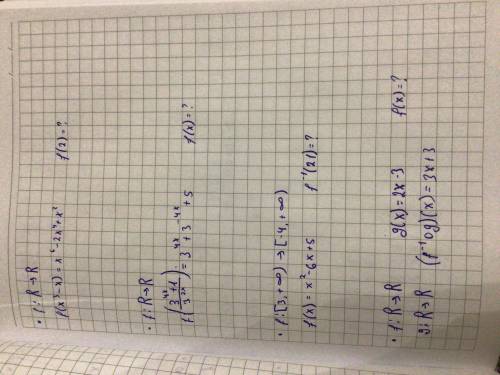 • f: R→R
f(x³-x) = x⁶-2x⁴+x² f(2)=?
• f: R→R
f((3⁴ˣ+1)/3²ˣ) = 3⁴ˣ+3⁻⁴ˣ+5 f(x)=?
• f: [3,+∞) → [-4,+∞)
f(x) = x²-6x+5 f⁻¹(21)=?
• f: R→R g(x)=2x-3 f(x)=?
g: R→R (f⁻¹og)(x) = 3x+3